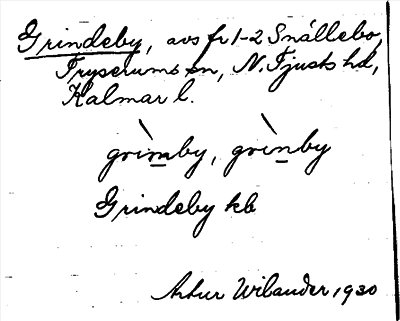 Grindeby, avs fr 1-2 Snållebo,
Tryserums sn, N. Tjusts hd,
Kalmar l.
grìmby, grìnby
Grindeby kb
Artur Wilander 1930